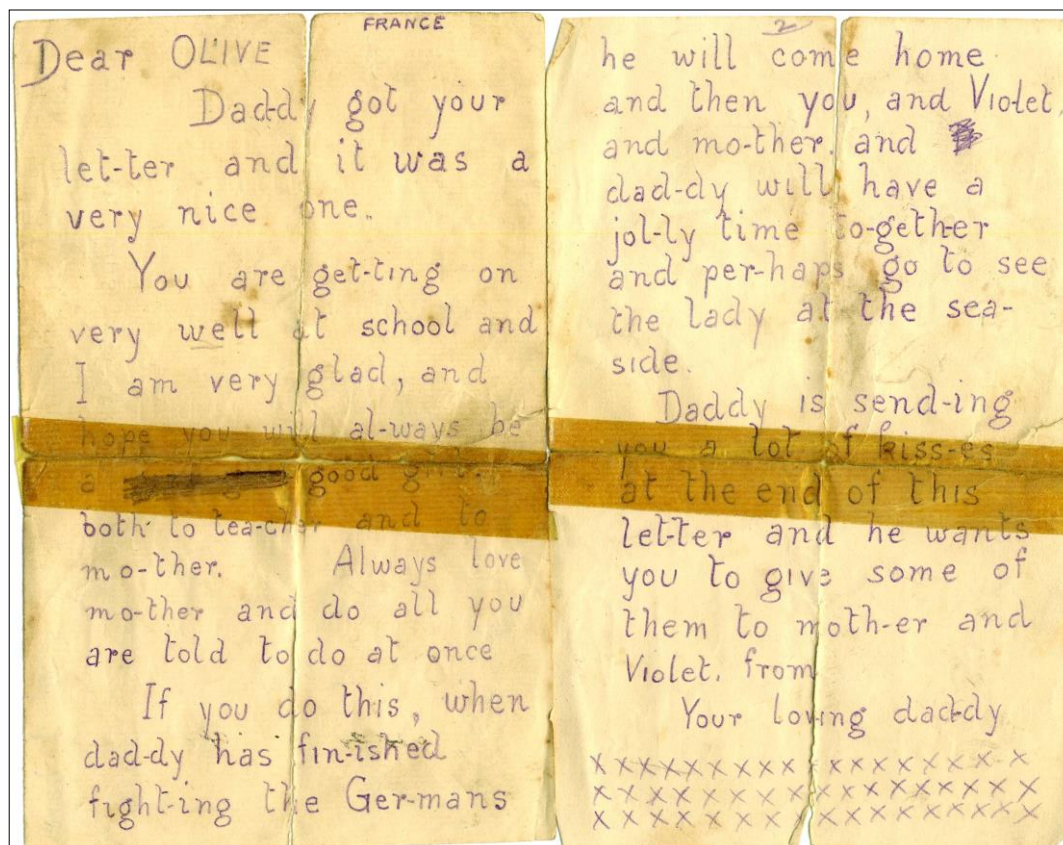 FRANCE
Dear OLIVE
Dad-dy got your
let-ter and it was a
very nice one.
You are get-ting on
very well at school and
I am very glad, and
hope you will al-ways be
a good girl.
both to tea-cher and to
mo-ther. Always love
mo-ther and do all you
are told to do at once
If you do this, when
dad-dy has fin-ished
fight-ing the Ger-mans
2
he will come home
and then you, and Violet
and mo-ther. and
dad-dy will have a
jol-ly time to-geth-er
and per-haps go to see
the lady at the sea-
side.
Daddy is send-ing
you a lot of kiss-es
at the end of this
let-ter and he wants
you to give some of
them to moth-er and
Violet. from
Your loving dad-dy
x x x x x x x x x x x x x x x x x x x
x x x x x x x x x x x x x x x x x x x
x x x x x x x x x x x x x x x x x x x